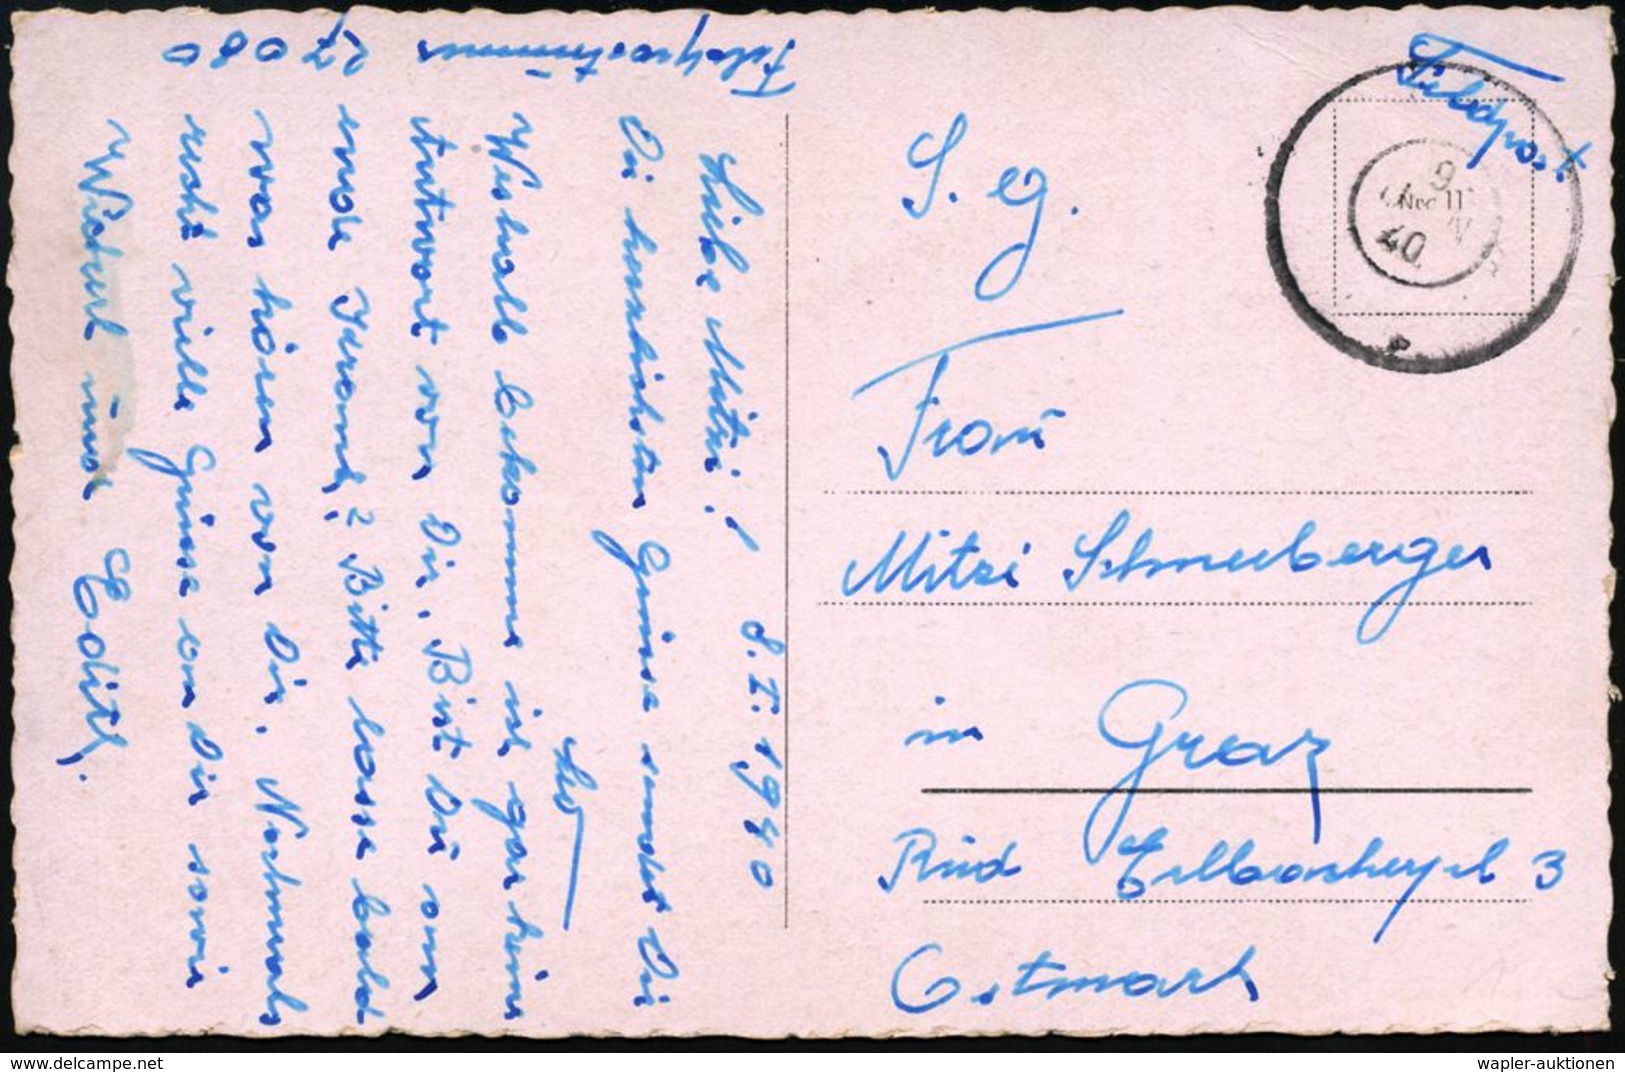 Feldpostnummer
27 080
8. I. 1940
Liebe Mitzi!
Die herzlichsten Grüsse sendet Dir
Leo
Weshalb bekomme ich gar keine
Antwort von Dir, Bist Du am
ende Krank? Bitte lasse bald
was hören von Dir. Nochmals
recht viele Grüsse an Dir sowie
Edith.
Feldpost
9
40
S. g.
Frau
Mitzi Schneeberger
in Graz
Ostmark
delcampe.net
wapler-auktionen